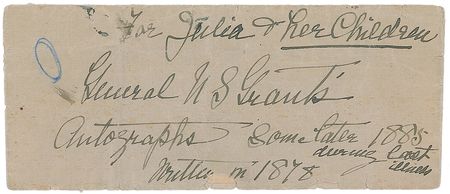 For Julia & her Children
General U S Grant's
Autographs some later 1885
during last
illness
Written in 1878